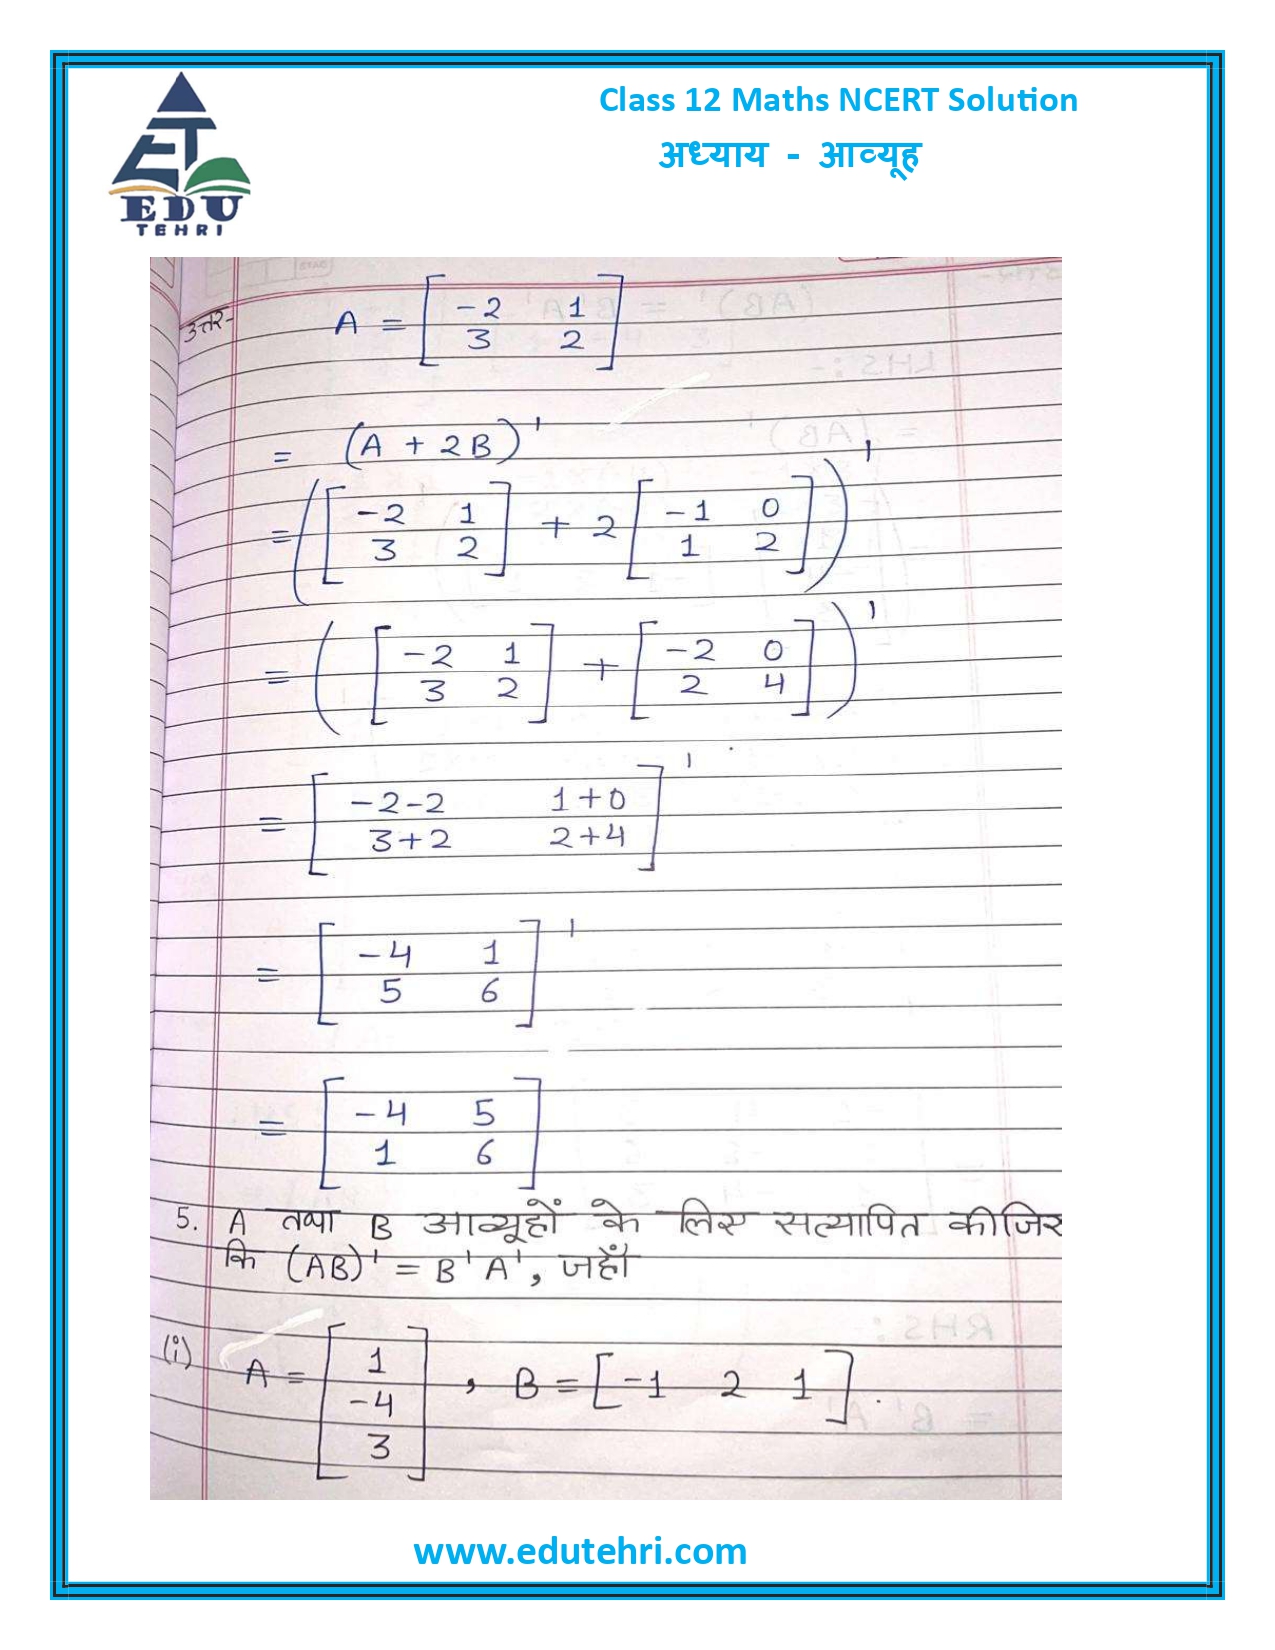 Class 12 Maths NCERT Solution
अध्याय - आव्यूह
EDU
TEHRI
उत्तर-
A = [-2 1
3 2]
= (A + 2B)'
= ([-2 1
3 2] + 2[-1 0
1 2])'
= ([-2 1
3 2] + [-2 0
2 4])'
= [-2-2 1+0
3+2 2+4]'
= [-4 1
5 6]'
= [-4 5
1 6]
5. A तथा B आव्यूहों के लिए सत्यापित कीजिए
कि (AB)' = B'A', जहाँ
(i) A = [1
-4
3] , B = [-1 2 1].
www.edutehri.com